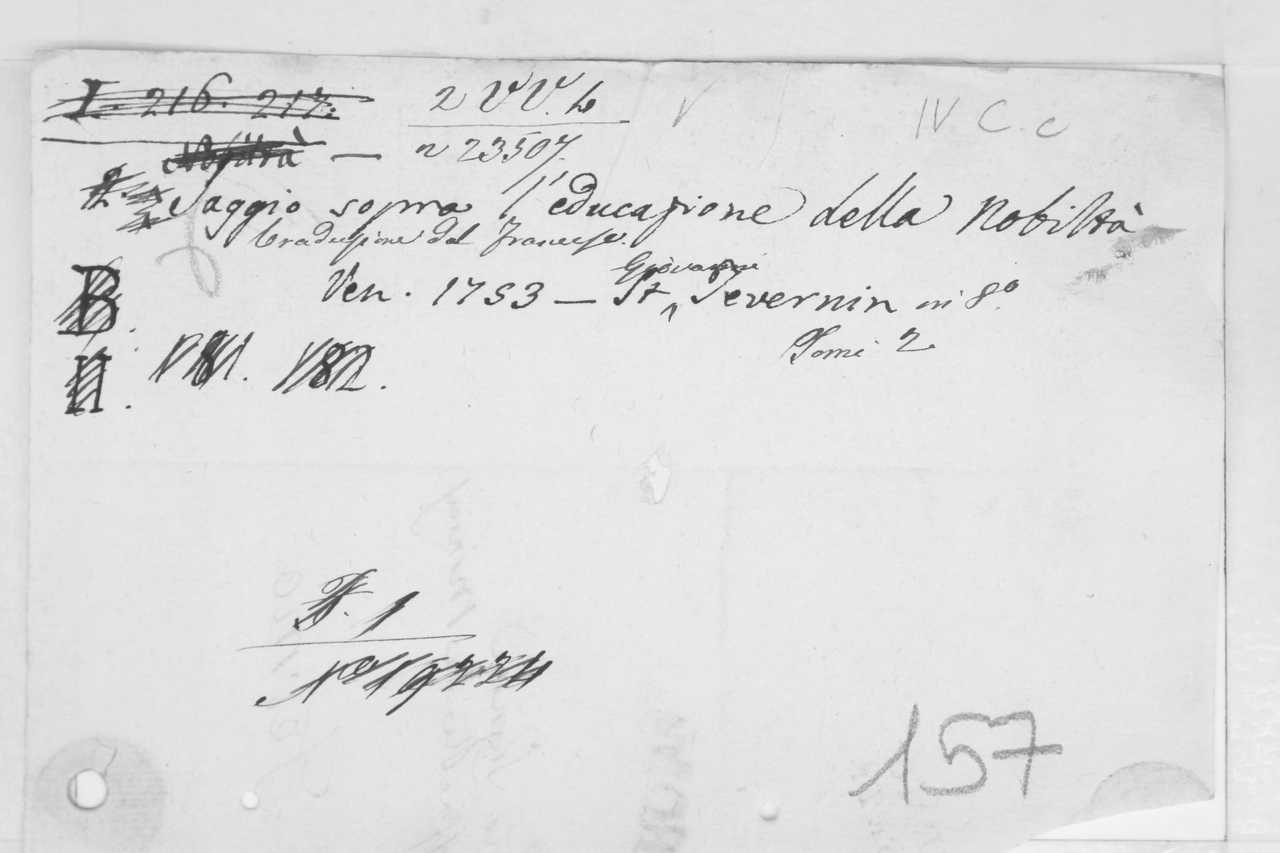 I. 216. 217. 2 VV. b IV C. c
Nobiltà — n 23507.
Saggio sopra l'educazione della Nobiltà
traduzione dal francese.
Ven. 1753 — St. Giovanni Severnin in 8º.
Tomi 2.
B.
II. 181. 182.
1
Nº 19224
157